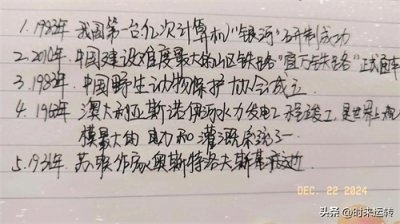 1.1983年 我国第一台亿次计算机“银河”研制成功
2.2010年.中国建设难度最大的山区铁路“宜万铁路”正式通车
3.1983年.中国野生动物保护协会成立.
4.1960年.澳大利亚斯诺伊河水力发电工程竣工,是世界上规
模最大的电力和灌溉系统之一
5.1936年.苏联作家奥斯特洛夫斯基逝世
DEC. 22 2024
头条 @时来运转